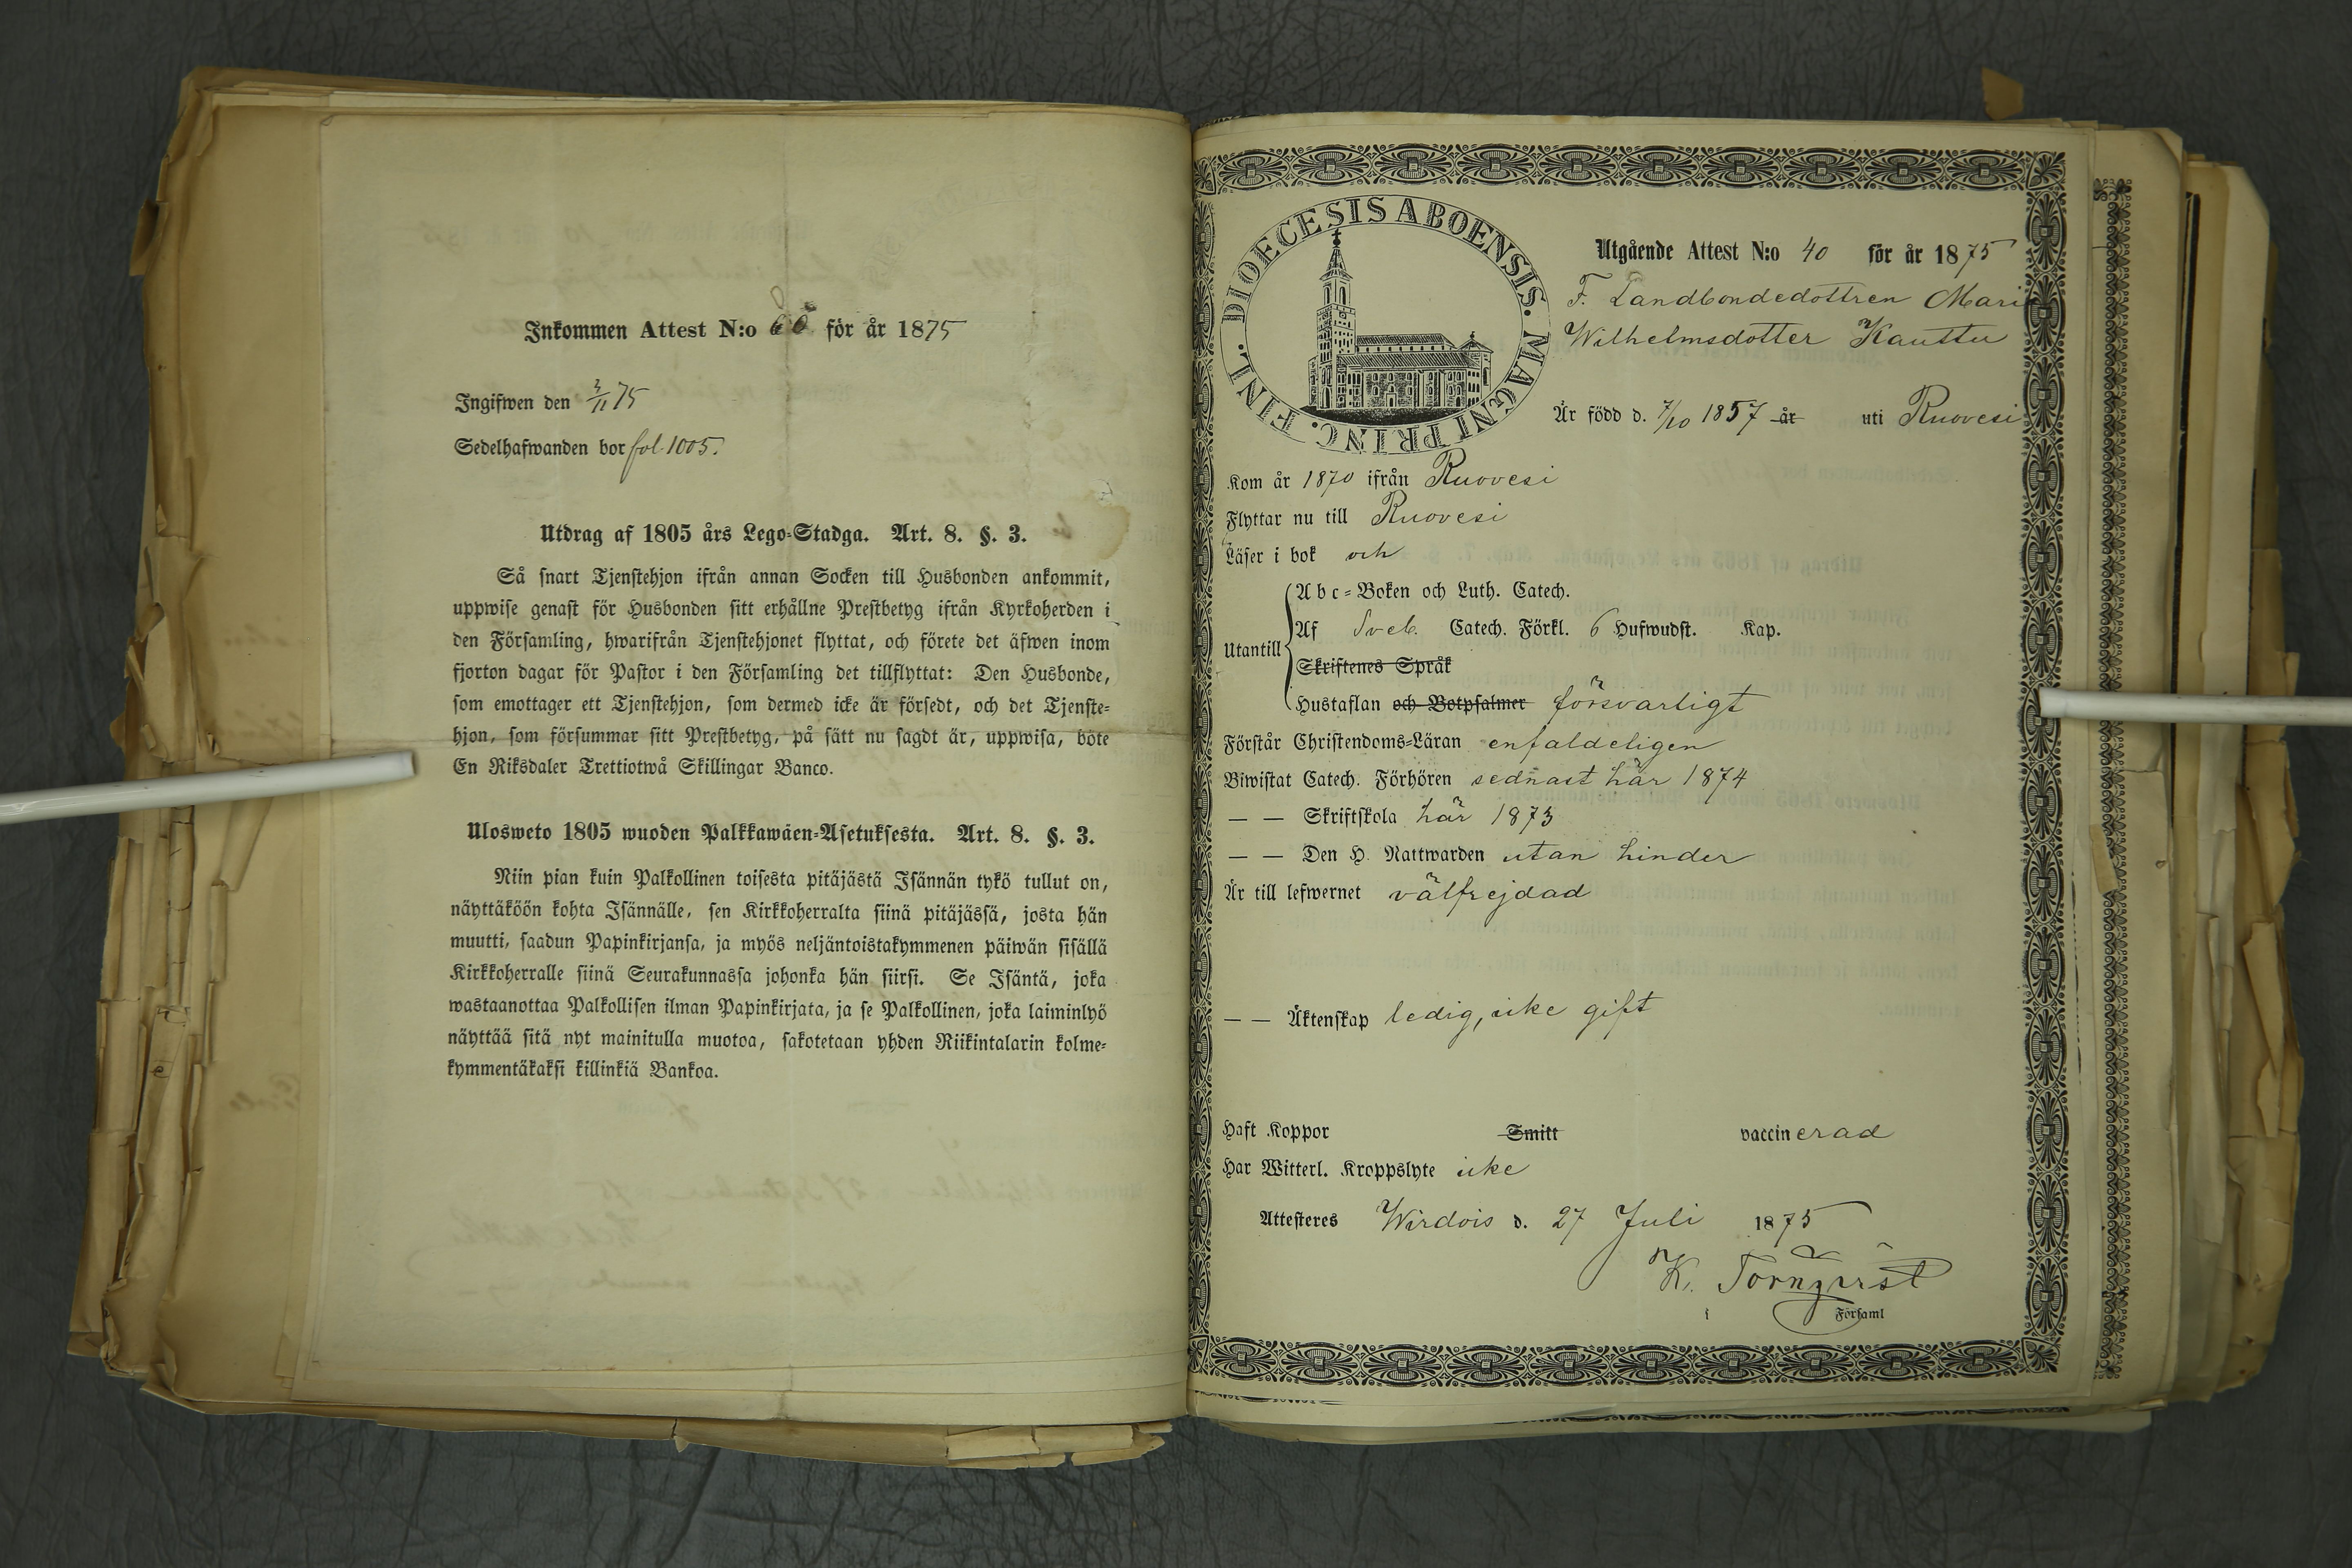 Inkommen Attest N:o 60 för år 1875
Ingifwen den 3/11 75
Sedelhafwanden bor fol. 1005.
Utdrag af 1805 års Lego-Stadga. Art. 8. §. 3.
Så snart Tjenstehjon ifrån annan Socken till Husbonden ankommit,
uppwise genast för Husbonden sitt erhållne Prestbetyg ifrån Kyrkoherden i
den Församling, hwarifrån Tjenstehjonet flyttat, och förete det äfwen inom
fjorton dagar för Pastor i den Församling det tillflyttat: Den Husbonde,
som emottager ett Tjenstehjon, som dermed icke är försedt, och det Tjenste-
hjon, som försummar sitt Prestbetyg, på sätt nu sagdt är, uppwisa, böte
En Riksdaler Trettiotwå Skillingar Banco.
Ulosweto 1805 wuoden Palkkawäen-Asetuksesta. Art. 8. §. 3.
Niin pian kuin Palkollinen toisesta pitäjästä Isännän tykö tullut on,
näyttäköön kohta Isännälle, sen Kirkkoherralta siinä pitäjässä, josta hän
muutti, saadun Papinkirjansa, ja myös neljäntoistakymmenen päiwän sisällä
Kirkkoherralle siinä Seurakunnassa johonka hän siirsi. Se Isäntä, joka
wastaanottaa Palkollisen ilman Papinkirjata, ja se Palkollinen, joka laiminlyö
näyttää sitä nyt mainitulla muotoa, sakotetaan yhden Riikintalarin kolme-
kymmentäkaksi killinkiä Bankoa.
DIOECESIS ABOENSIS. MAGNI PRINC. FINL.
Utgående Attest N:o 40 för år 1875
F. Landbondedottren Mari
Wilhelmsdotter Kauttu
Är född d. 7/10 1857 år uti Ruovesi
Kom år 1870 ifrån Ruovesi
Flyttar nu till Ruovesi
Läser i bok och
Abc-Boken och Luth. Catech.
Af Sveb. Catech. Förkl. 6 Hufwudst. Kap.
Utantill
Skriftenes Språk
Hustaflan och Botpsalmer försvarligt
Förstår Christendoms-Läran enfaldeligen
Biwistat Catech. Förhören sednast här 1874
— — Skriftskola här 1873
— — Den H. Nattwarden utan hinder
Är till lefwernet välfrejdad
— — Äktenskap ledig, icke gift
Haft Koppor Smitt vaccinerad
Har Witterl. Kroppslyte icke
Attesteres Wirdois d. 27 Juli 1875
K. Törnqvist
i Församl